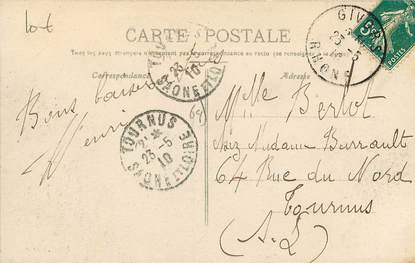 lot
CARTE POSTALE
Tous les pays étrangers n'acceptent pas la correspondance au recto (se renseigner à la poste)
Correspondance
Adresse
GIVORS
23-5
RHÔNE
TOURNUS
23-5
10
SAONE ET LOIRE
Bons baisers
Henri
69
TOURNUS
2-*
23-5
10
SAONE ET LOIRE
Mlle Berlot
chez Madame Barrault
64 Rue du Nord
Tournus
(S.L)